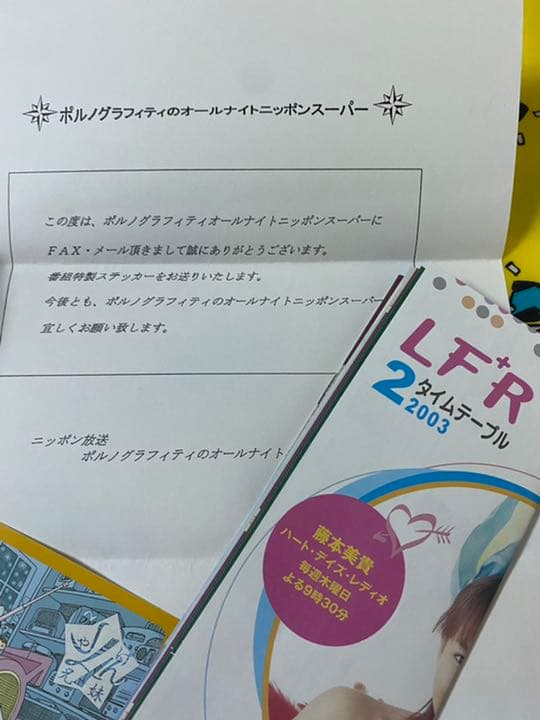 ポルノグラフィティのオールナイトニッポンスーパー
この度は、ポルノグラフィティオールナイトニッポンスーパーに
FAX・メール頂きまして誠にありがとうございます。
番組特製ステッカーをお送りいたします。
今後とも、ポルノグラフィティのオールナイトニッポンスーパー
宜しくお願い致します。
ニッポン放送
ポルノグラフィティのオールナイト
LF+R
2
タイムテーブル
2003
藤本美貴
ハート・デイズ・レディオ
毎週木曜日
よる9時30分
兄妹